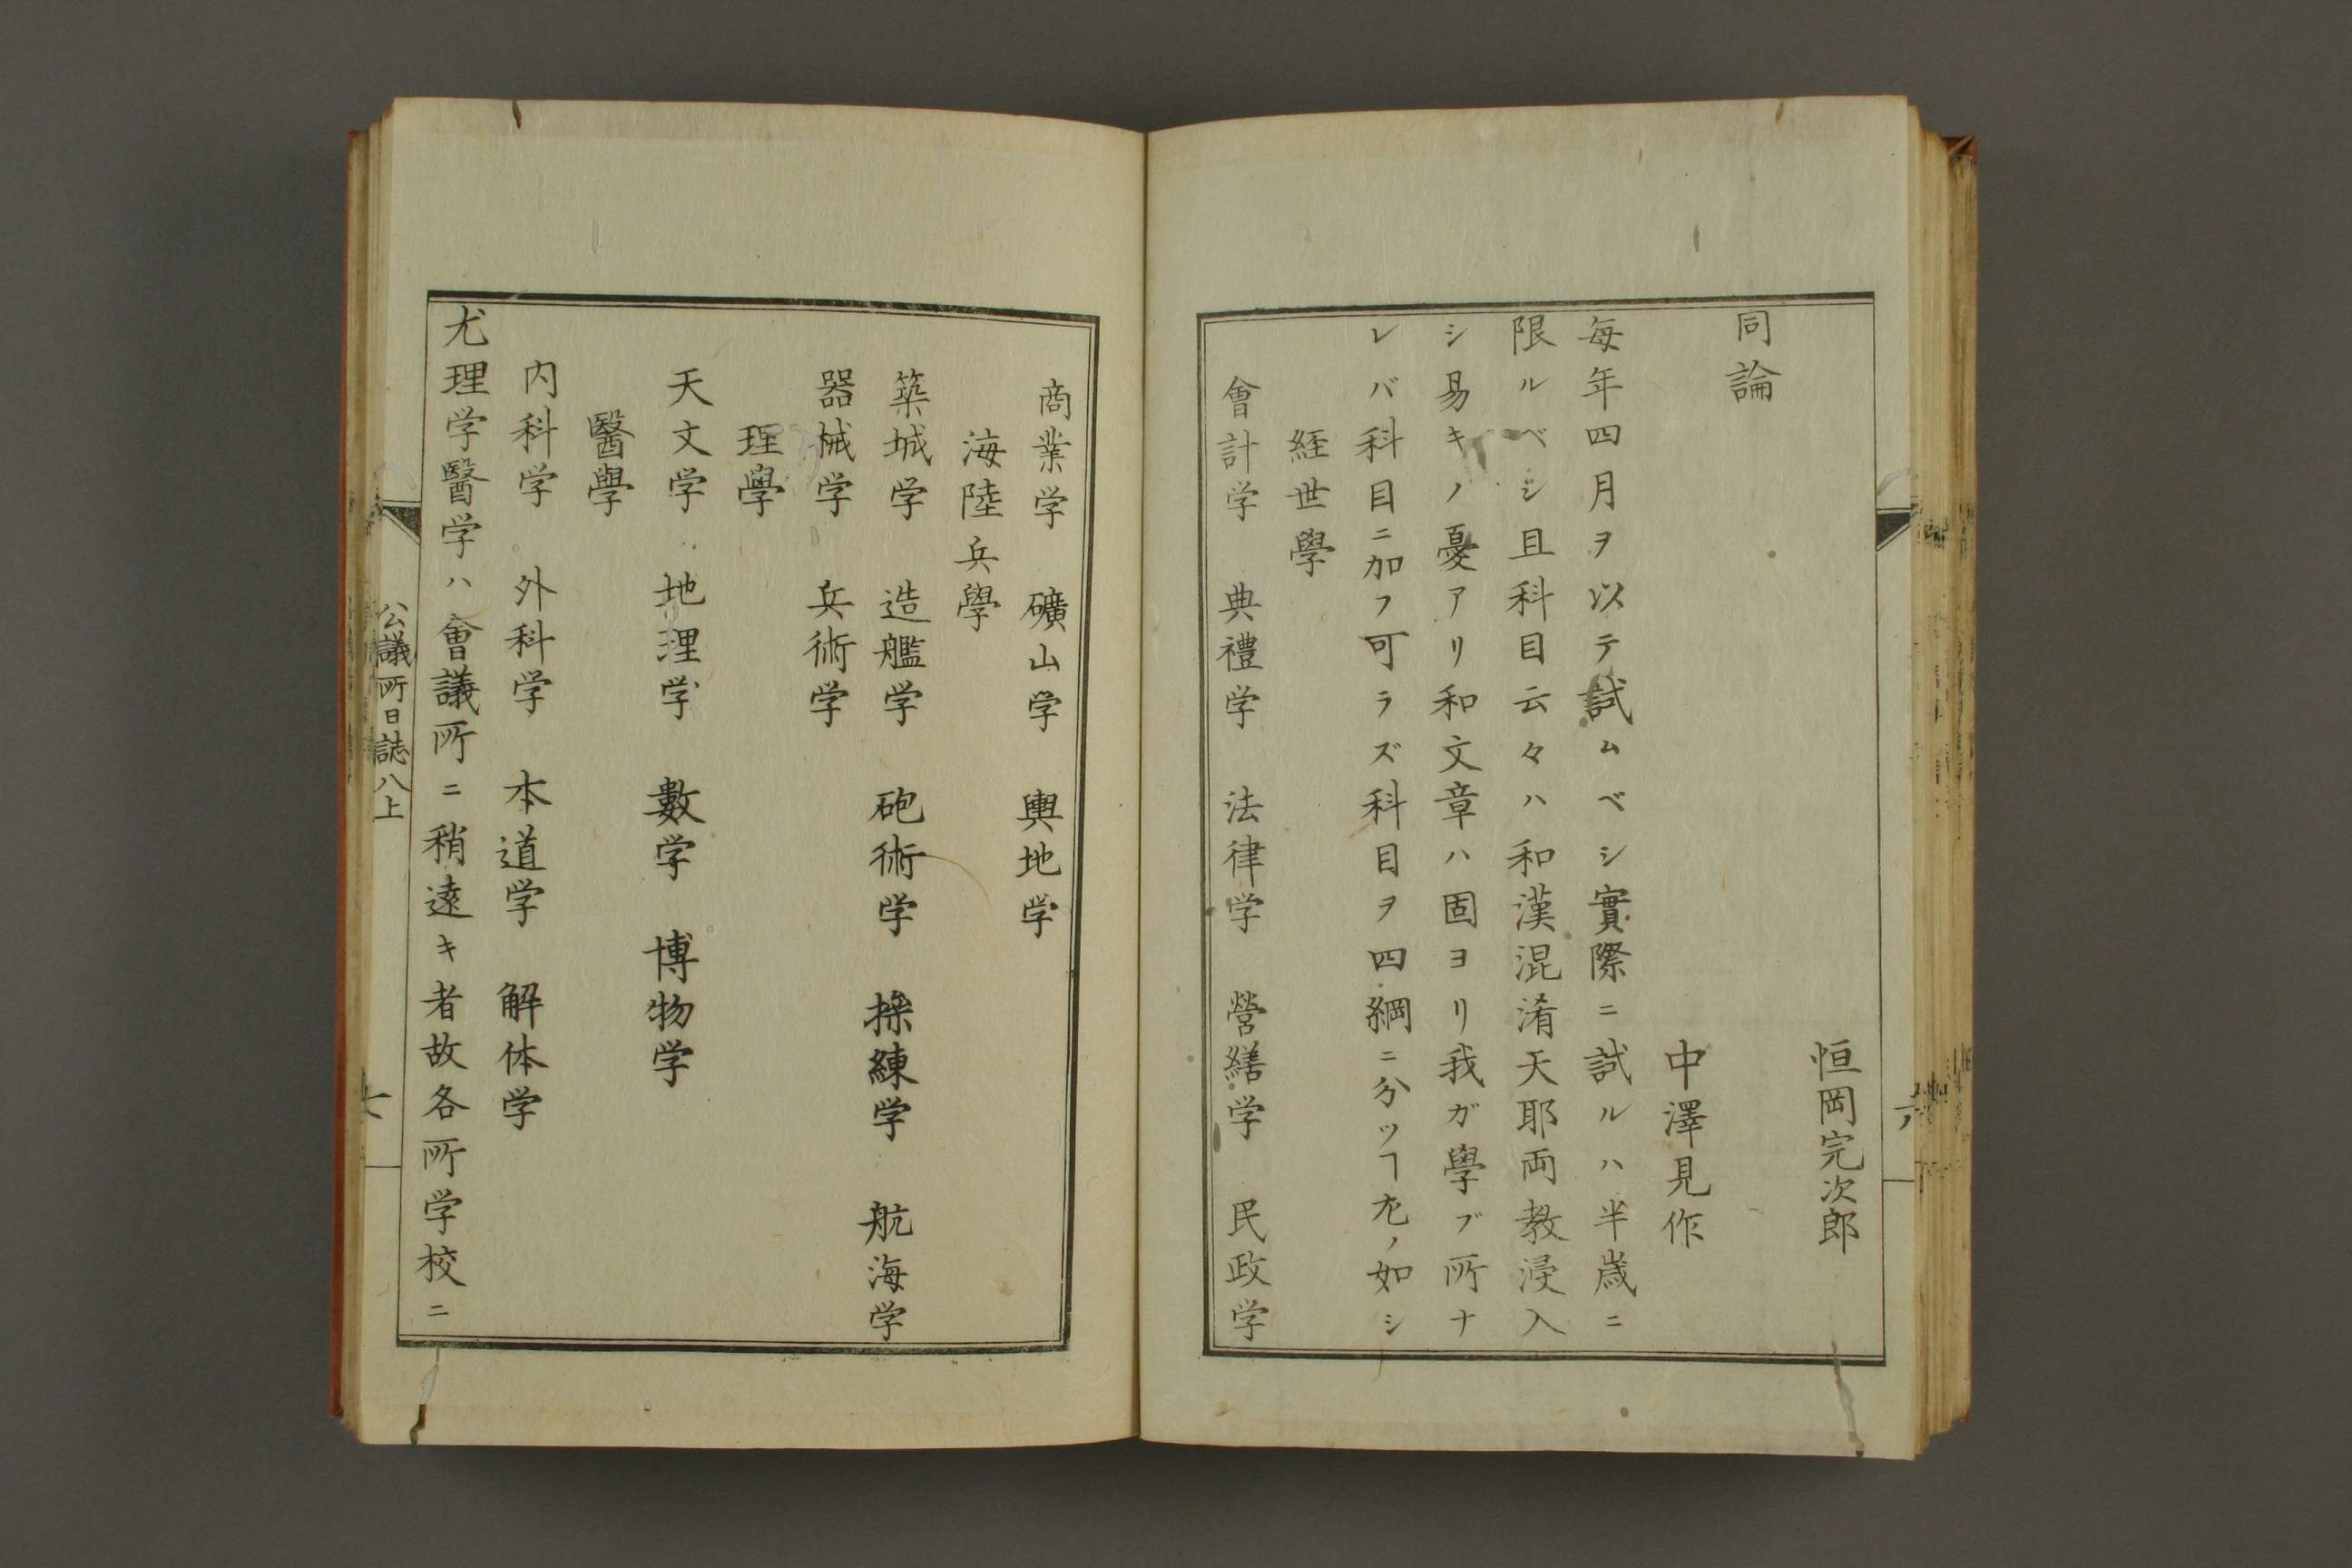 恒岡完次郎
同論
中澤見作
毎年四月ヲ以テ試ムベシ實際ニ試ルハ半歳ニ
限ルベシ且科目云々ハ和漢混淆天耶両教浸入
シ易キノ憂アリ和文章ハ固ヨリ我ガ學ブ所ナ
レバ科目ニ加フ可ラズ科目ヲ四綱ニ分ツヿ左ノ如シ
経世學
會計学 典禮学 法律学 營繕学 民政学
六
商業学 礦山学 輿地学
海陸兵學
築城学 造艦学 砲術学 操練学 航海学
器械学 兵術学
理學
天文学 地理学 數学 博物学
醫學
内科学 外科学 本道学 解体学
尤理学醫学ハ會議所ニ稍遠キ者故各所学校ニ
公議所日誌八上
七